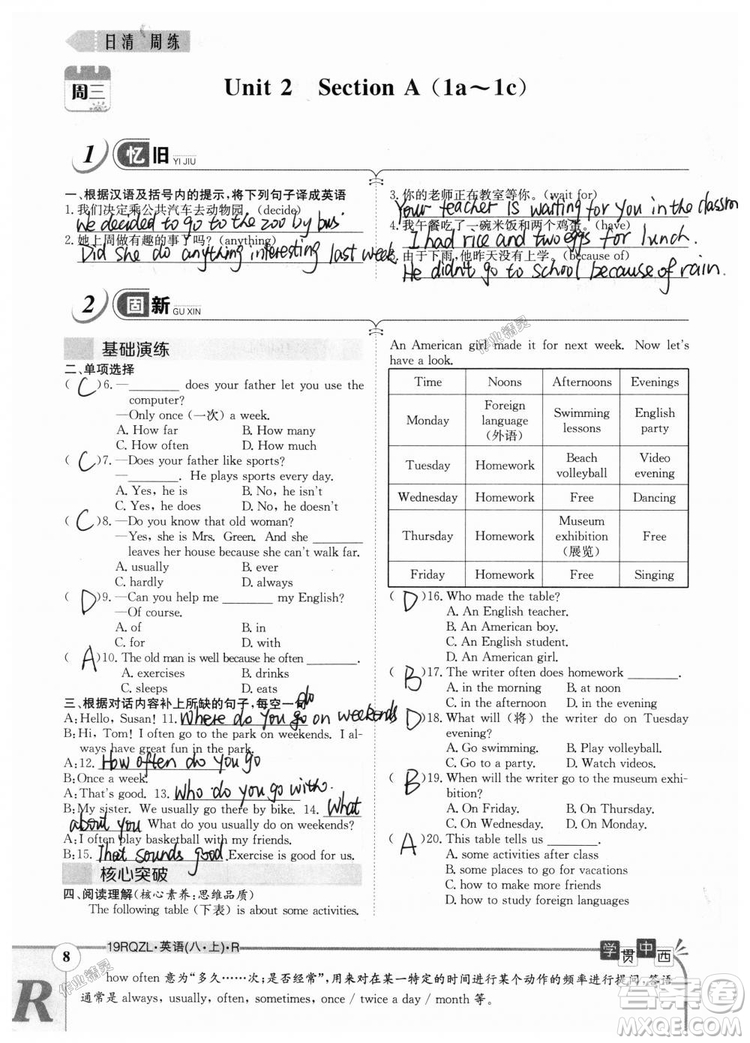 日清 周练
周三
Unit 2 Section A (1a～1c)
1 忆旧 YI JIU
一、根据汉语及括号内的提示,将下列句子译成英语
1. 我们决定乘公共汽车去动物园。(decide)
We decided to go to the zoo by bus
2. 她上周做有趣的事了吗? (anything)
Did she do anything interesting last week
3. 你的老师正在教室等你。(wait for)
Your teacher is waiting for you in the classroom
4. 我午餐吃了一碗米饭和两个鸡蛋。(have)
I had rice and two eggs for lunch.
由于下雨,他昨天没有上学。(because of)
He didn't go to school because of rain.
2 固新 GU XIN
基础演练
二、单项选择
( C )6. —________ does your father let you use the
computer?
—Only once (一次) a week.
A. How far B. How many
C. How often D. How much
( C )7. —Does your father like sports?
—________. He plays sports every day.
A. Yes, he is B. No, he isn't
C. Yes, he does D. No, he doesn't
( C )8. —Do you know that old woman?
—Yes, she is Mrs. Green. And she ________
leaves her house because she can't walk far.
A. usually B. ever
C. hardly D. always
( D )9. —Can you help me ________ my English?
—Of course.
A. of B. in
C. for D. with
( A )10. The old man is well because he often ________.
A. exercises B. drinks
C. sleeps D. eats
三、根据对话内容补上所缺的句子,每空一句
A: Hello, Susan! 11. Where do you go on weekends
do
B: Hi, Tom! I often go to the park on weekends. I al-
ways have great fun in the park.
A: 12. How often do you go
B: Once a week.
A: That's good. 13. Who do you go with.
B: My sister. We usually go there by bike. 14. What
about you What do you usually do on weekends?
A: I often play basketball with my friends.
B: 15. That sounds good. Exercise is good for us.
核心突破
四、阅读理解(核心素养:思维品质)
The following table (下表) is about some activities.
An American girl made it for next week. Now let's
have a look.
Time Noons Afternoons Evenings
Monday Foreign language (外语) Swimming lessons English party
Tuesday Homework Beach volleyball Video evening
Wednesday Homework Free Dancing
Thursday Homework Museum exhibition (展览) Free
Friday Homework Free Singing
( D )16. Who made the table?
A. An English teacher.
B. An American boy.
C. An English student.
D. An American girl.
( B )17. The writer often does homework ________.
A. in the morning B. at noon
C. in the afternoon D. in the evening
( D )18. What will (将) the writer do on Tuesday
evening?
A. Go swimming. B. Play volleyball.
C. Go to a party. D. Watch videos.
( B )19. When will the writer go to the museum exhi-
bition?
A. On Friday. B. On Thursday.
C. On Wednesday. D. On Monday.
( A )20. This table tells us ________.
A. some activities after class
B. some places to go for vacations
C. how to make some friends
D. how to make yourself healthy
8 19RQZL·英语(八·上)·R
学贯中西
R
how often 意为“多久……次;是否经常”,用来对在某一特定的时间进行某个动作的频率进行提问,答语
通常是 always, usually, often, sometimes, once / twice a day / month 等。
作业精灵
作业精灵
答案圈